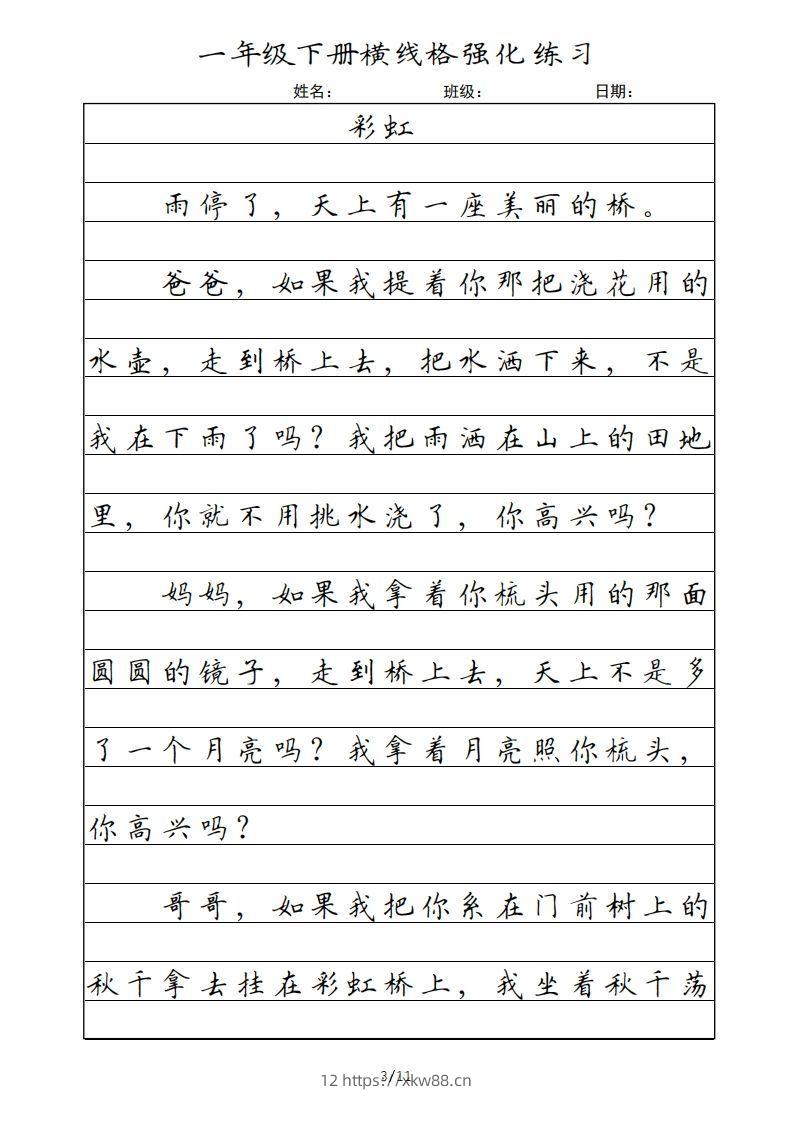 一年级下册横线格强化练习
姓名： 班级： 日期：
彩虹
雨停了，天上有一座美丽的桥。
爸爸，如果我提着你那把浇花用的
水壶，走到桥上去，把水洒下来，不是
我在下雨了吗？我把雨洒在山上的田地
里，你就不用挑水浇了，你高兴吗？
妈妈，如果我拿着你梳头用的那面
圆圆的镜子，走到桥上去，天上不是多
了一个月亮吗？我拿着月亮照你梳头，
你高兴吗？
哥哥，如果我把你系在门前树上的
秋千拿去挂在彩虹桥上，我坐着秋千荡
3/11
12 https://xkw88.cn